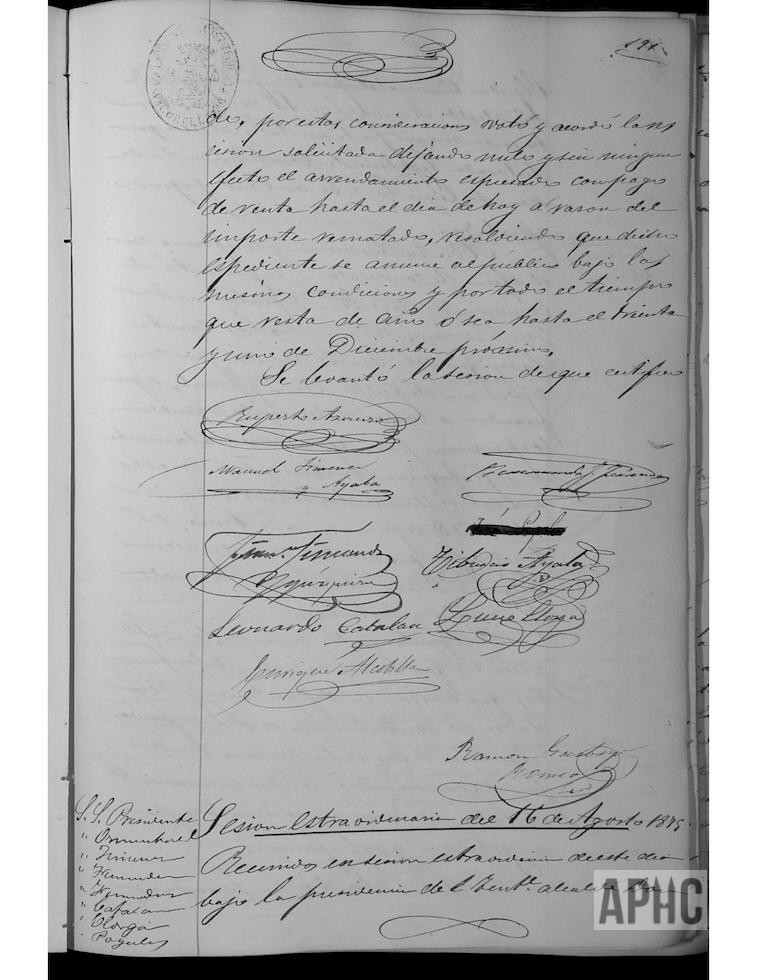 191
de, por estas consideraciones votó y acordó la res
cision solicitada dejando nulo y sin ningun
efecto el arrendamiento espresado con pago
de renta hasta el dia de hoy á razon del
importe rematado, resolviendo que dicho
espediente se anuncie al público bajo las
mismas condiciones y por todo el tiempo
que resta de año ó sea hasta el treinta
y uno de Diciembre próximo.
Se levantó la sesion de que certifico
Ruperto
Manuel Jimenez
y Ayala
Tiburcio Ayala
Leonardo Catalan
Enrique Alcobilla
Ramon
S. S. Presidente
" Jimenez
" Fernandez
" Catalan
" Elorga
Sesion estraordinaria del 16 de Agosto 1875
Reunidos en sesion estraordinaria de este dia
bajo la presidencia del Tente. alcalde Don
APHC